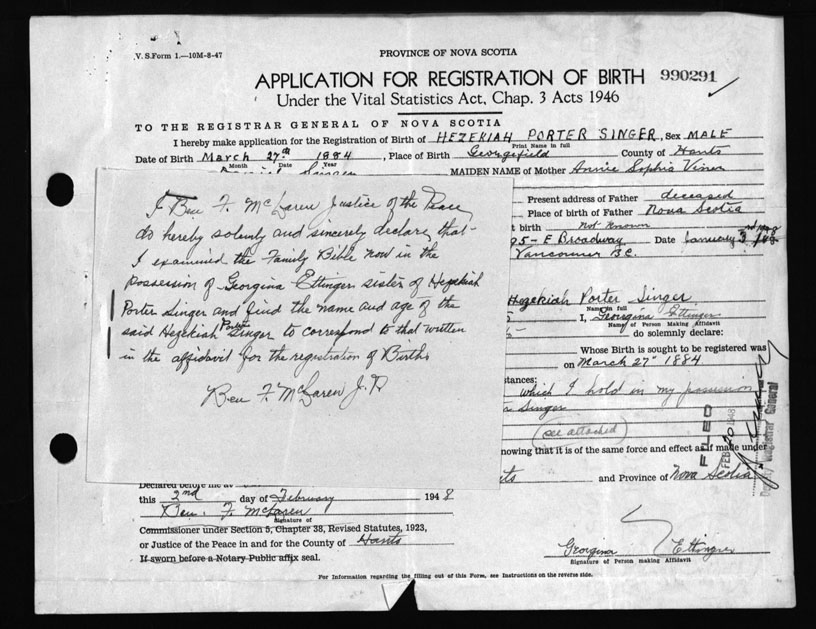 V. S. Form 1.—10M-8-47
PROVINCE OF NOVA SCOTIA
APPLICATION FOR REGISTRATION OF BIRTH 990291
Under the Vital Statistics Act, Chap. 3 Acts 1946
TO THE REGISTRAR GENERAL OF NOVA SCOTIA
I hereby make application for the Registration of Birth of HEZEKIAH PORTER SINGER, Sex MALE
Print Name in full
Date of Birth March 27th 1884, Place of Birth Georgefield County of Hants
Month Date Year
MAIDEN NAME of Mother Annie Sophia
Present address of Father deceased
Place of birth of Father Nova Scotia
t birth not known
95 - E Broadway Date January 3rd
Vancouver B.C.
Hezekiah Porter Singer
Name in full
I, Georgina Ettinger
Name of Person Making Affidavit
do solemnly declare:
Whose Birth is sought to be registered was
on March 27th 1884
stances:
which I hold in my possession
Singer
(see attached)
nowing that it is of the same force and effect as if made under
ts and Province of Nova Scotia
I Ben F. McLaren Justice of the Peace
do hereby solemnly and sincerely declare that
I examined the Family Bible now in the
possession of Georgina Ettinger sister of Hezekiah
Porter Singer and find the name and age of the
said Hezekiah Porter Singer to correspond to that written
in the affidavit for the registration of Births
Ben F. McLaren J.P.
Declared before me at
this 2nd day of February 1948
Ben. F. McLaren
Signature of
Commissioner under Section 5, Chapter 38, Revised Statutes, 1923,
or Justice of the Peace in and for the County of Hants
If sworn before a Notary Public affix seal.
Georgina Ettinger
Signature of Person making Affidavit
For Information regarding the filling out of this Form, see Instructions on the reverse side.
FILED
FEB 20 1948
Deputy Registrar General